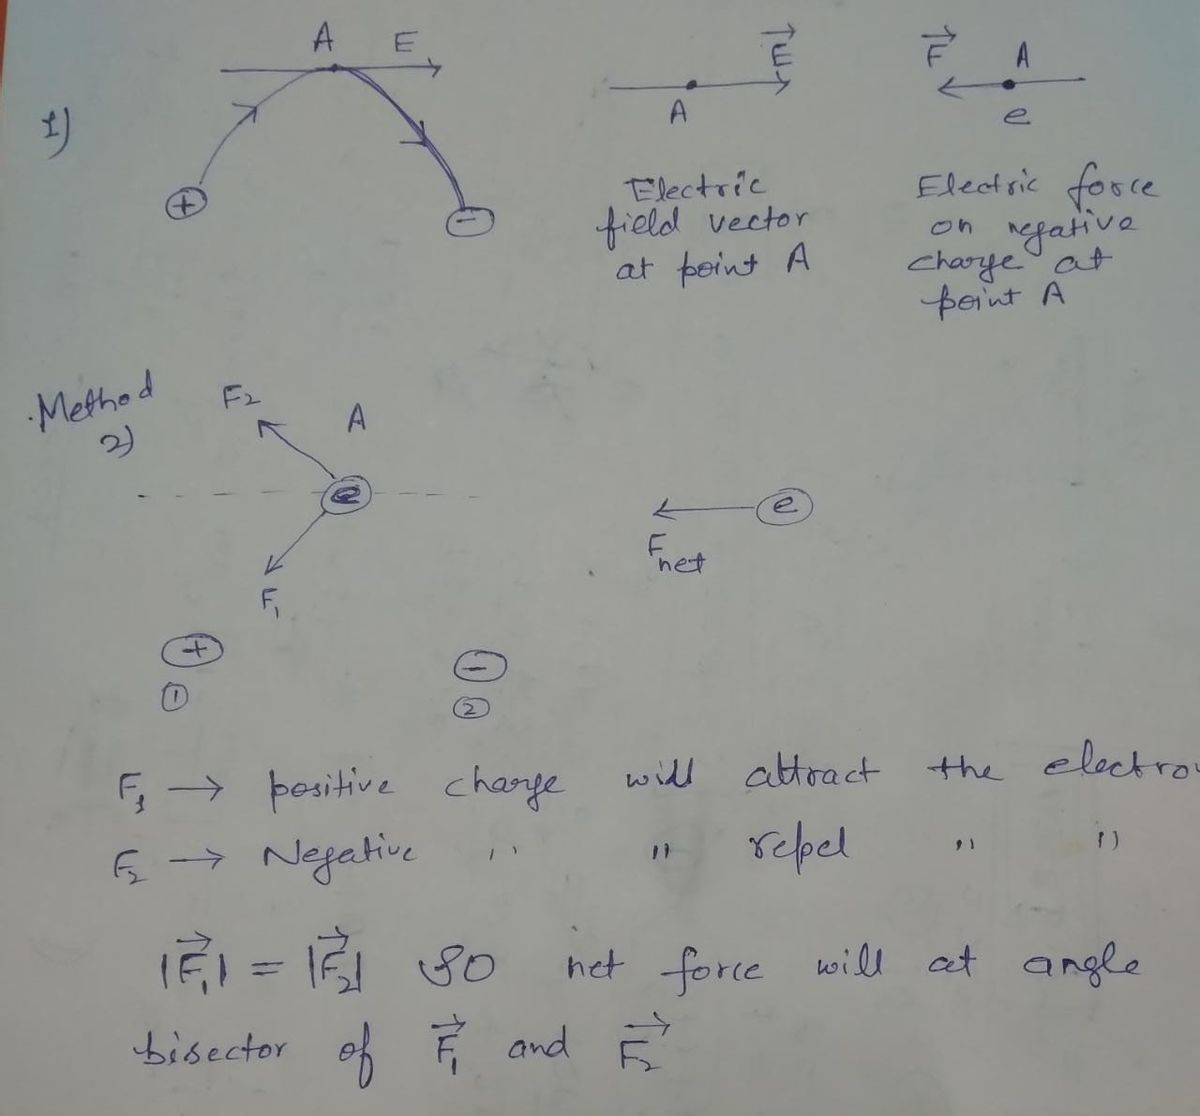 A E
1)
+
-
E⃗
A
Electric
field vector
at point A
F⃗ A
e
Electric force
on negative
charge at
point A
.Method
2)
F₂ A
e
F₁
e
Fnet
+
①
-
②
F₁ → positive charge will attract the electro
F₂ → Negative '' '' repel '' ''
|F⃗₁| = |F⃗₂| SO net force will at angle
bisector of F⃗₁ and F⃗₂